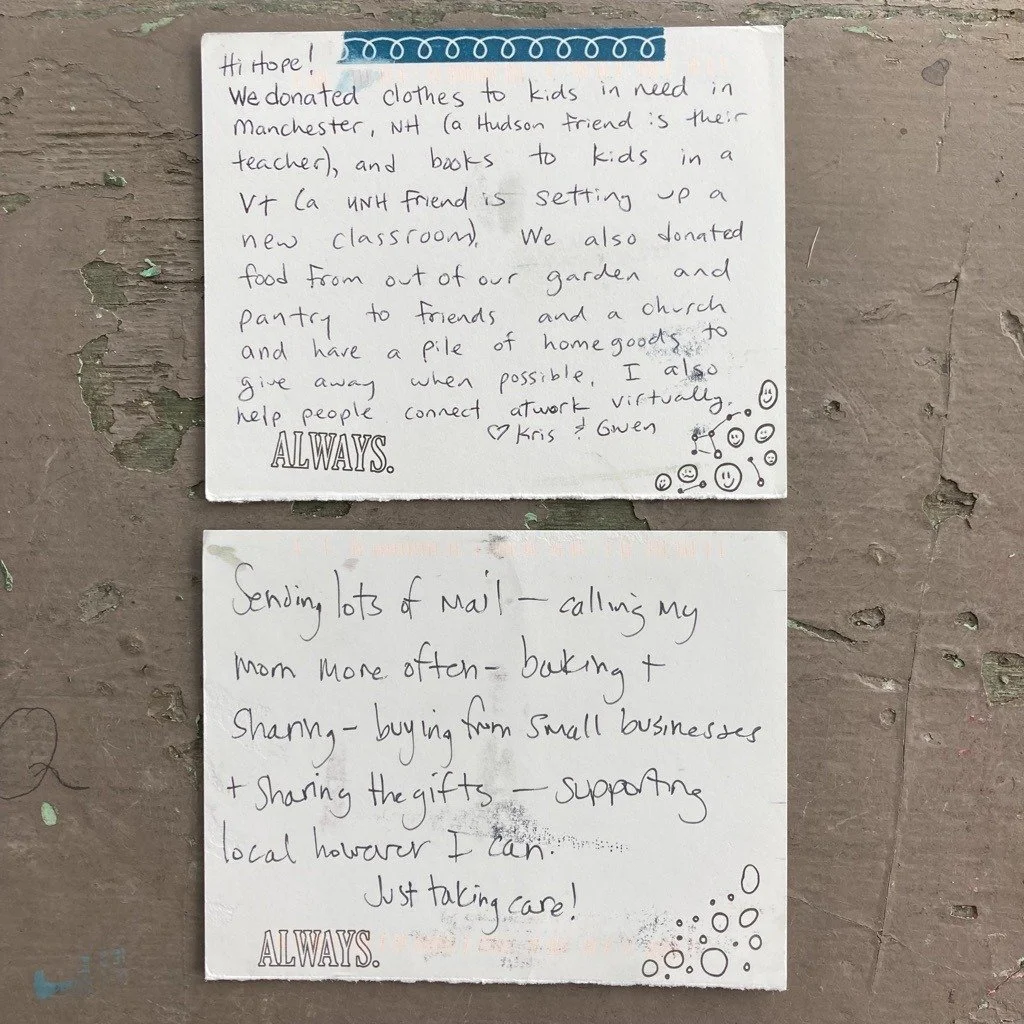 Hi Hope!
We donated clothes to kids in need in
Manchester, NH (a Hudson friend is their
teacher), and books to kids in a
VT (a UNH friend is setting up a
new classroom). We also donated
food from out of our garden and
pantry to friends and a church
and have a pile of home goods to
give away when possible. I also
help people connect at work virtually.
♡ Kris & Gwen
ALWAYS.
Sending lots of mail – calling my
mom more often – baking +
sharing – buying from small businesses
+ sharing the gifts – supporting
local however I can.
Just taking care!
ALWAYS.